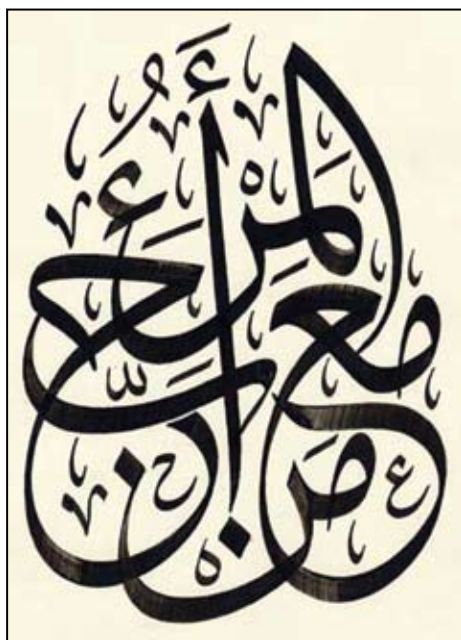 المرء مع من أحب